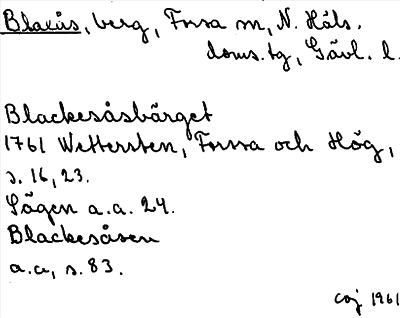 Blacås, berg, Forsa sn, N. Häls.
doms.tg, Gävl. l.
Blackesåsbärget
1761 Wettersten, Forssa och Hög,
s. 16, 23.
Sägen a.a. 24.
Blackesåsen
a.a, s. 83.
coj 1961